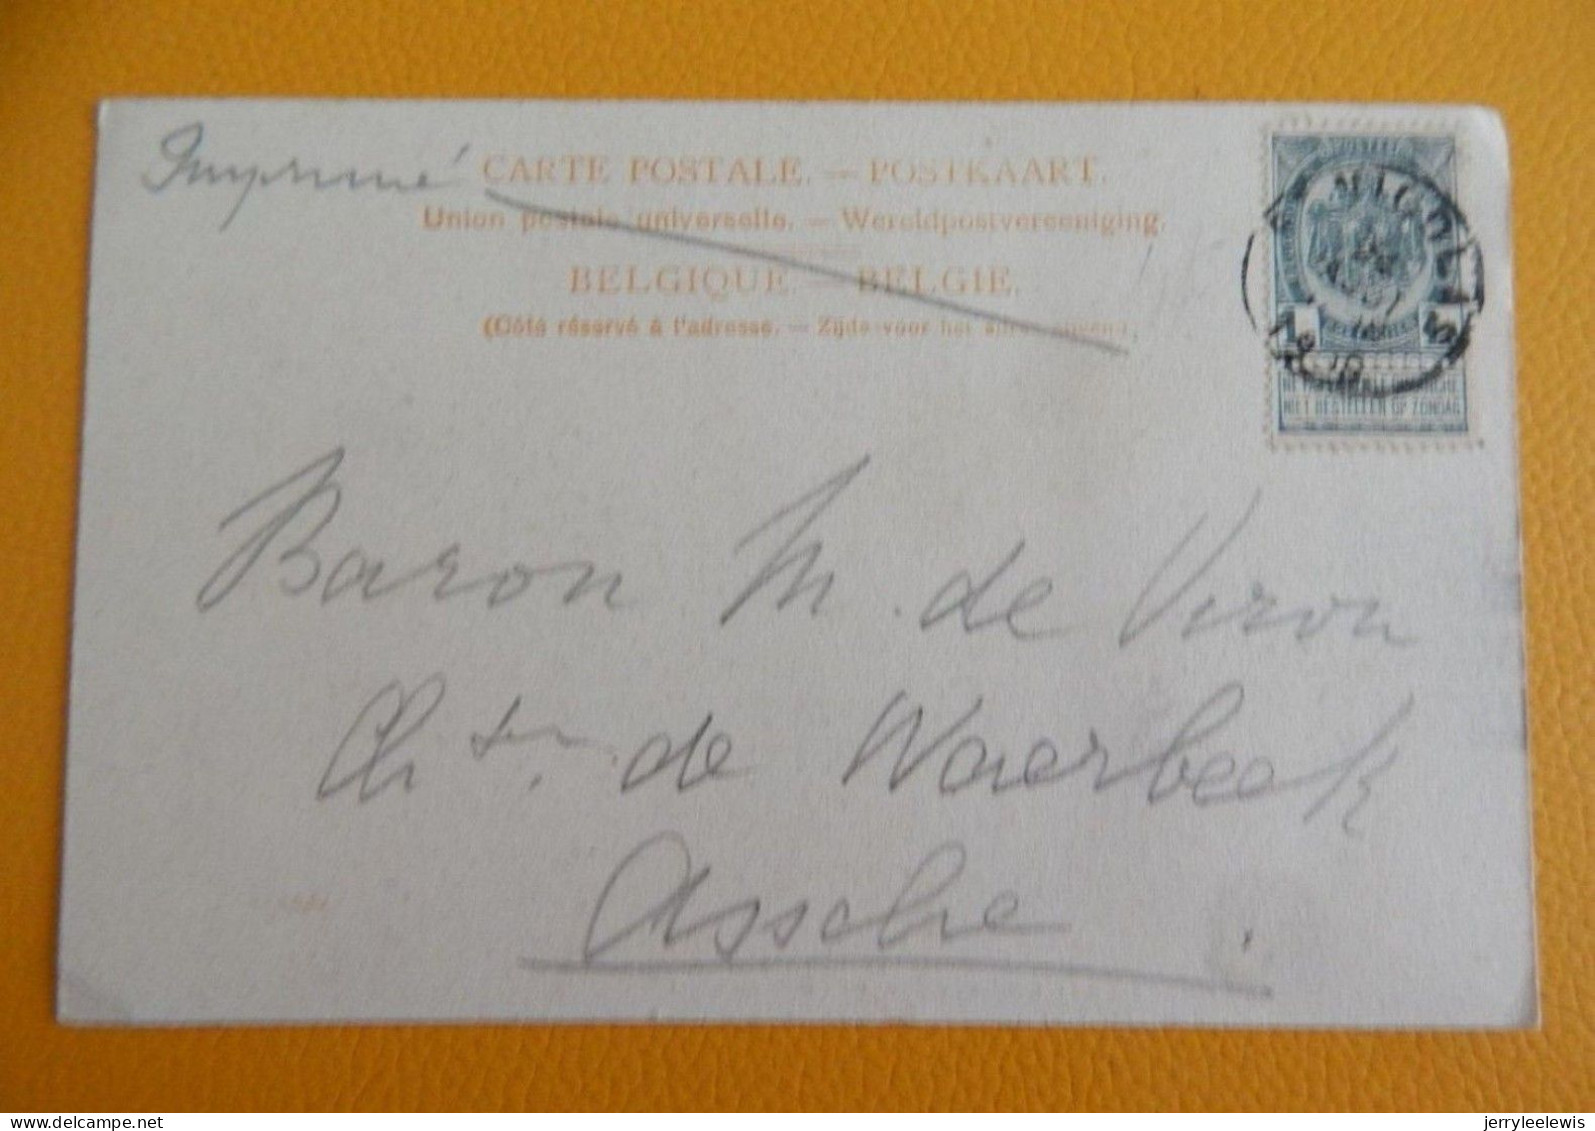 Imprimé
CARTE POSTALE. — POSTKAART.
Union postale universelle. — Wereldpostvereeniging.
BELGIQUE — BELGIE.
(Côté réservé à l'adresse. — Zijde voor het
NIET BESTELLEN OP ZONDAG
Baron M. de Viron
de Waerbeek
Assche
www.delcampe.net
jerryleelewis